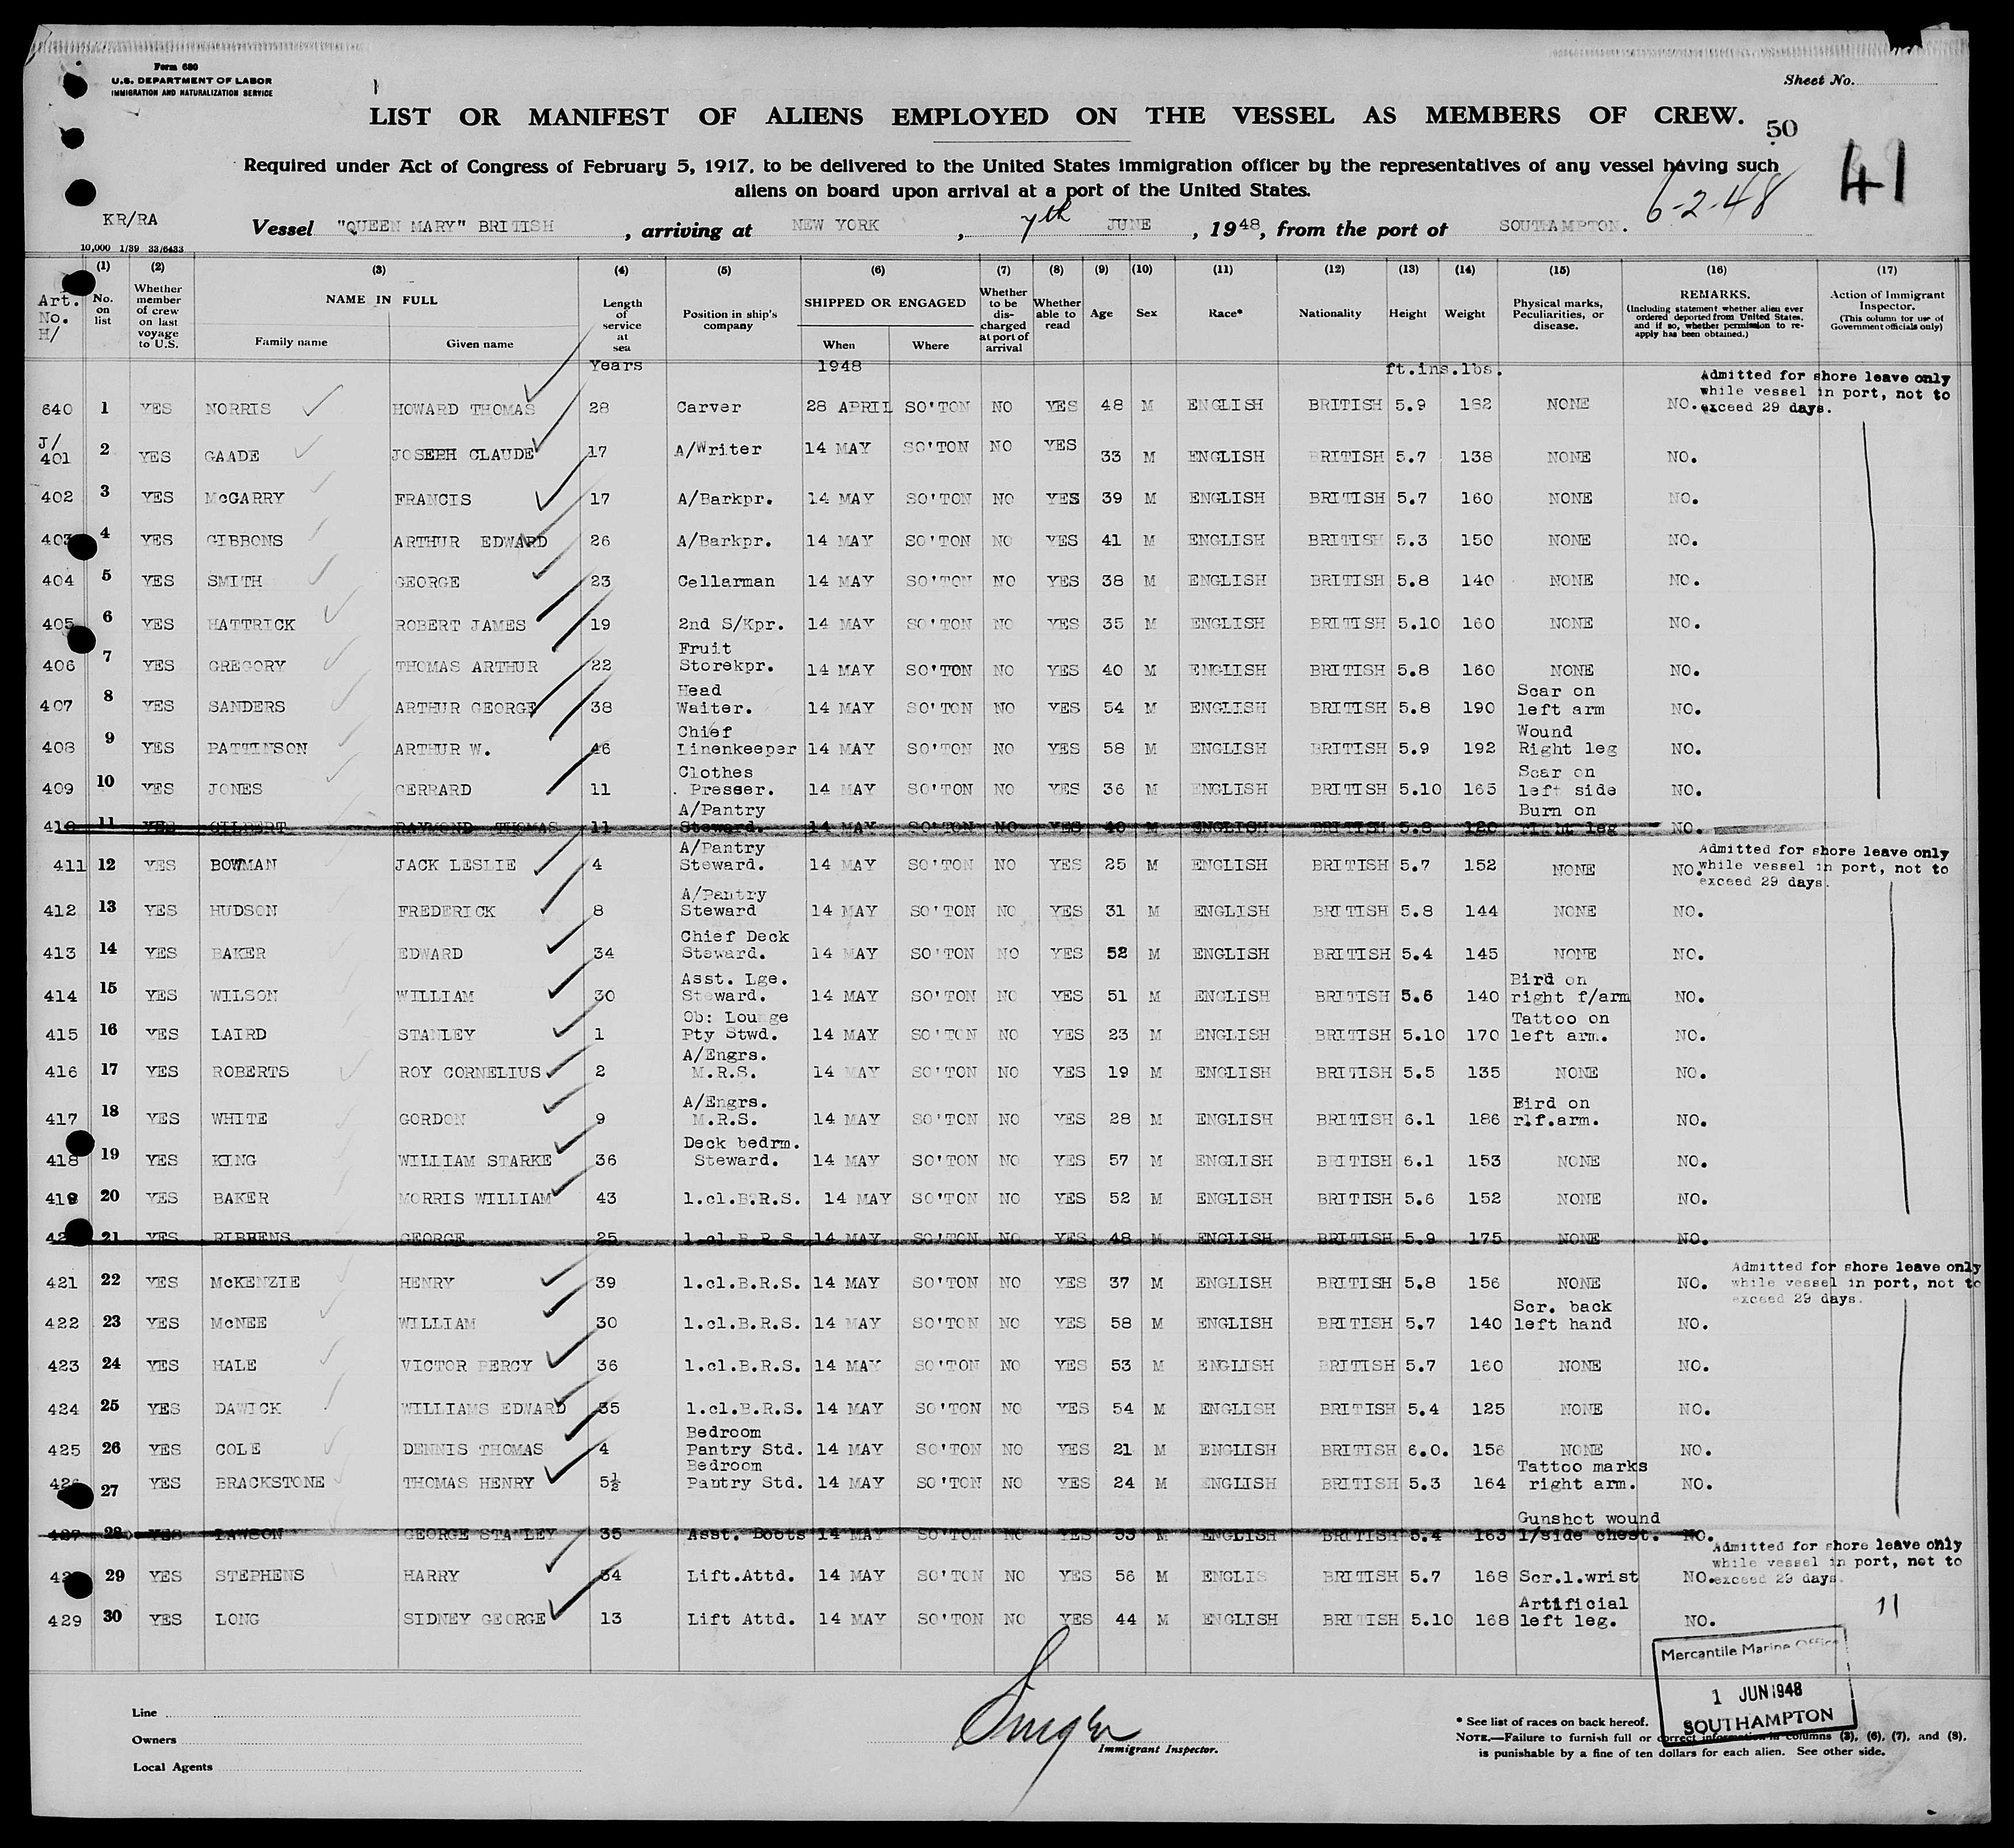 Form 680
U.S. DEPARTMENT OF LABOR
IMMIGRATION AND NATURALIZATION SERVICE
Sheet No.
LIST OR MANIFEST OF ALIENS EMPLOYED ON THE VESSEL AS MEMBERS OF CREW.
50
41
Required under Act of Congress of February 5, 1917, to be delivered to the United States immigration officer by the representatives of any vessel having such
aliens on board upon arrival at a port of the United States.
6-2-48
KR/RA
Vessel "QUEEN MARY" BRITISH, arriving at NEW YORK, 7th JUNE, 1948, from the port of SOUTHAMPTON.
10,000 1/39 33/6433
(1) (2) (3) (4) (5) (6) (7) (8) (9) (10) (11) (12) (13) (14) (15) (16) (17)
Art. No. H/ No. on list Whether member of crew on last voyage to U.S. NAME IN FULL Family name Given name Length of service at sea Position in ship's company SHIPPED OR ENGAGED When Where Whether to be discharged at port of arrival Whether able to read Age Sex Race* Nationality Height Weight Physical marks, Peculiarities, or disease. REMARKS. (Including statement whether alien ever ordered deported from United States, and if so, whether permission to re-apply has been obtained.) Action of Immigrant Inspector. (This column for use of Government officials only)
Years 1948 ft.ins.lbs.
640 1 YES NORRIS HOWARD THOMAS 28 Carver 28 APRIL SO'TON NO YES 48 M ENGLISH BRITISH 5.9 182 NONE NO. Admitted for shore leave only while vessel in port, not to exceed 29 days.
J/401 2 YES GAADE JOSEPH CLAUDE 17 A/Writer 14 MAY SO'TON NO YES 33 M ENGLISH BRITISH 5.7 138 NONE NO.
402 3 YES McGARRY FRANCIS 17 A/Barkpr. 14 MAY SO'TON NO YES 39 M ENGLISH BRITISH 5.7 160 NONE NO.
403 4 YES GIBBONS ARTHUR EDWARD 26 A/Barkpr. 14 MAY SO'TON NO YES 41 M ENGLISH BRITISH 5.3 150 NONE NO.
404 5 YES SMITH GEORGE 23 Cellarman 14 MAY SO'TON NO YES 38 M ENGLISH BRITISH 5.8 140 NONE NO.
405 6 YES HATTRICK ROBERT JAMES 19 2nd S/Kpr. 14 MAY SO'TON NO YES 35 M ENGLISH BRITISH 5.10 160 NONE NO.
406 7 YES GREGORY THOMAS ARTHUR 22 Fruit Storekpr. 14 MAY SO'TON NO YES 40 M ENGLISH BRITISH 5.8 160 NONE NO.
407 8 YES SANDERS ARTHUR GEORGE 38 Head Waiter. 14 MAY SO'TON NO YES 54 M ENGLISH BRITISH 5.8 190 Scar on left arm NO.
408 9 YES PATTINSON ARTHUR W. 46 Chief Linenkeeper 14 MAY SO'TON NO YES 58 M ENGLISH BRITISH 5.9 192 Wound Right leg NO.
409 10 YES JONES GERRARD 11 Clothes Presser. 14 MAY SO'TON NO YES 36 M ENGLISH BRITISH 5.10 165 Scar on left side NO.
410 11 YES GILBERT RAYMOND THOMAS 11 A/Pantry Steward. 14 MAY SO'TON NO YES 40 M ENGLISH BRITISH 5.8 120 Burn on right leg NO.
411 12 YES BOWMAN JACK LESLIE 4 A/Pantry Steward. 14 MAY SO'TON NO YES 25 M ENGLISH BRITISH 5.7 152 NONE NO. Admitted for shore leave only while vessel in port, not to exceed 29 days.
412 13 YES HUDSON FREDERICK 8 A/Pantry Steward 14 MAY SO'TON NO YES 31 M ENGLISH BRITISH 5.8 144 NONE NO.
413 14 YES BAKER EDWARD 34 Chief Deck Steward. 14 MAY SO'TON NO YES 52 M ENGLISH BRITISH 5.4 145 NONE NO.
414 15 YES WILSON WILLIAM 30 Asst. Lge. Steward. 14 MAY SO'TON NO YES 51 M ENGLISH BRITISH 5.6 140 Bird on right f/arm NO.
415 16 YES LAIRD STANLEY 1 Ob: Lounge Pty Stwd. 14 MAY SO'TON NO YES 23 M ENGLISH BRITISH 5.10 170 Tattoo on left arm. NO.
416 17 YES ROBERTS ROY CORNELIUS 2 A/Engrs. M.R.S. 14 MAY SO'TON NO YES 19 M ENGLISH BRITISH 5.5 135 NONE NO.
417 18 YES WHITE GORDON 9 A/Engrs. M.R.S. 14 MAY SO'TON NO YES 28 M ENGLISH BRITISH 6.1 186 Bird on r.f.arm. NO.
418 19 YES KING WILLIAM STARKE 36 Deck bedrm. Steward. 14 MAY SO'TON NO YES 57 M ENGLISH BRITISH 6.1 153 NONE NO.
419 20 YES BAKER MORRIS WILLIAM 43 1.cl.B.R.S. 14 MAY SO'TON NO YES 52 M ENGLISH BRITISH 5.6 152 NONE NO.
42 21 YES RIBBENS GEORGE 25 1.cl.B.R.S. 14 MAY SO'TON NO YES 48 M ENGLISH BRITISH 5.9 175 NONE NO.
421 22 YES McKENZIE HENRY 39 1.cl.B.R.S. 14 MAY SO'TON NO YES 37 M ENGLISH BRITISH 5.8 156 NONE NO. Admitted for shore leave only while vessel in port, not to exceed 29 days.
422 23 YES McNEE WILLIAM 30 1.cl.B.R.S. 14 MAY SO'TON NO YES 58 M ENGLISH BRITISH 5.7 140 Scr. back left hand NO.
423 24 YES HALE VICTOR PERCY 36 1.cl.B.R.S. 14 MAY SO'TON NO YES 53 M ENGLISH BRITISH 5.7 160 NONE NO.
424 25 YES DAWICK WILLIAMS EDWARD 35 1.cl.B.R.S. 14 MAY SO'TON NO YES 54 M ENGLISH BRITISH 5.4 125 NONE NO.
425 26 YES COLE DENNIS THOMAS 4 Bedroom Pantry Std. 14 MAY SO'TON NO YES 21 M ENGLISH BRITISH 6.0. 156 NONE NO.
426 27 YES BRACKSTONE THOMAS HENRY 5½ Bedroom Pantry Std. 14 MAY SO'TON NO YES 24 M ENGLISH BRITISH 5.3 164 Tattoo marks right arm. NO.
427 28 YES LAWSON GEORGE STANLEY 35 Asst. Boots 14 MAY SO'TON NO YES 53 M ENGLISH BRITISH 5.4 163 Gunshot wound l/side chest. NO.
42 29 YES STEPHENS HARRY 34 Lift.Attd. 14 MAY SO'TON NO YES 56 M ENGLIS BRITISH 5.7 168 Scr.l.wrist NO. Admitted for shore leave only while vessel in port, not to exceed 29 days.
429 30 YES LONG SIDNEY GEORGE 13 Lift Attd. 14 MAY SO'TON NO YES 44 M ENGLISH BRITISH 5.10 168 Artificial left leg. NO. 11
Mercantile Marine Office
1 JUN 1948
SOUTHAMPTON
Line
Owners
Local Agents
Immigrant Inspector.
* See list of races on back hereof.
NOTE.—Failure to furnish full or correct information in columns (3), (6), (7), and (8),
is punishable by a fine of ten dollars for each alien. See other side.